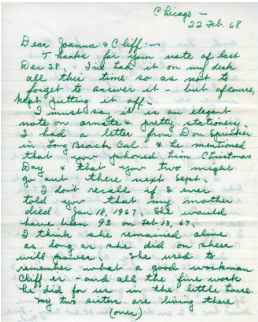 Chicago -
22 Feb. 68
Dear Joanna & Cliff: -
Thanks for your note of last
Dec 28. I've had it on my desk
all this time so as not to
forget to answer it - but of course,
kept putting it off.
I must say it is an elegant
note on ornate & pretty stationery.
I had a letter from Don
in Long Beach, Cal. & he mentioned
that you phoned him Christmas
Day & that you two might
go out there next Sept.
I don't recall if I ever
told you that my mother
died Jan 18, 1967. She would
have been 93 on Feb 13, 67.
I think she remained alive
as long as she did on sheer
will power. She used to
remember what a good workman
Cliff was - and all the fine work
he did for us in the little house.
My two sisters are living there
(over)